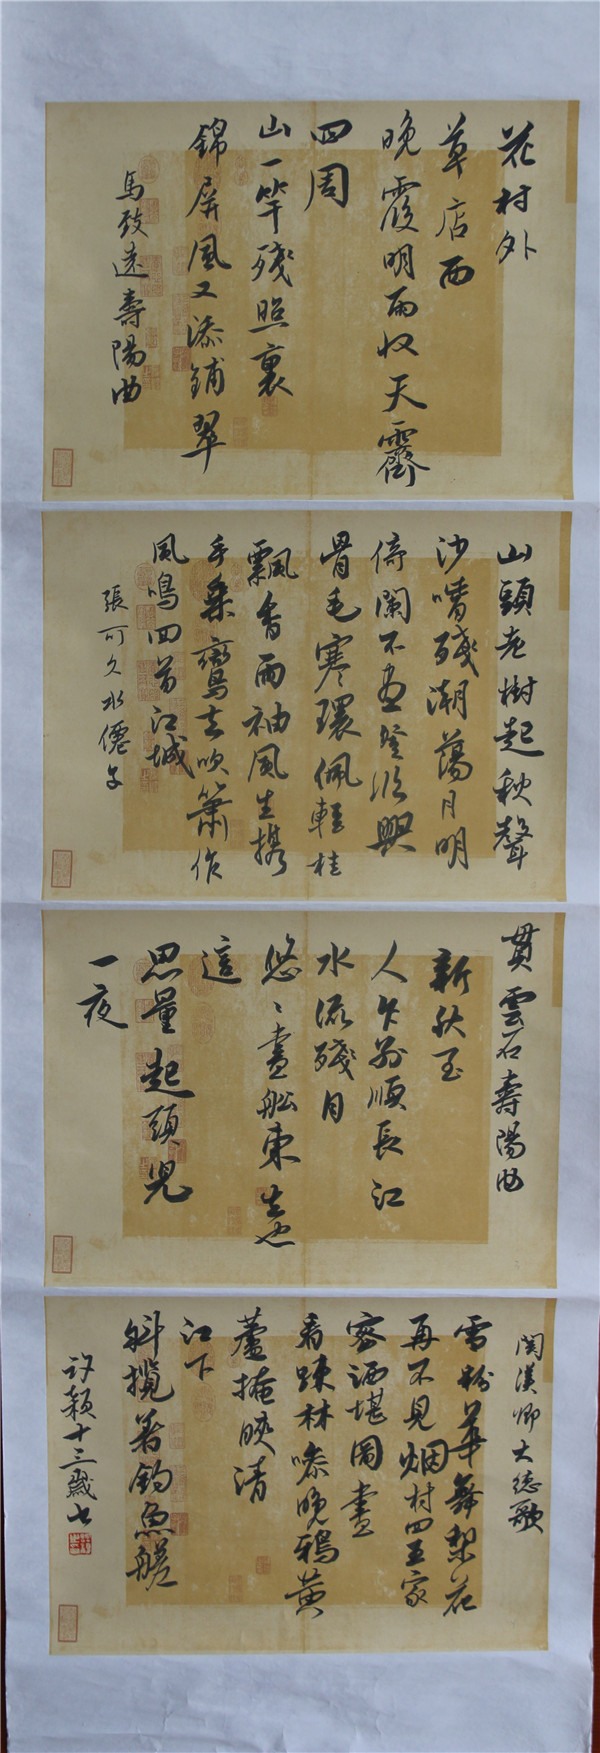 花村外
草店西
晚霞明雨收天霽
四周
山一竿殘照裏
錦屏風又添鋪翠
馬致遠壽陽曲
山頭老樹起秋聲
沙嘴殘潮蕩月明
倚闌不盡登臨興
骨毛寒環佩輕桂
飄香兩袖風生攜
手乘鸞去吹簫作
鳳鳴回首江城
張可久水僊子
貫雲石壽陽曲
新秋至
人乍別順長江
水流殘月
悠〻畫舩東去也
這
思量起頭兒
一夜
關漢卿大德歌
雪粉華舞梨花
再不見烟村四五家
密洒堪圖畫
看疎林噪晚鴉黄
蘆掩映清
江下
斜攬著釣魚艖
許穎十三歲書